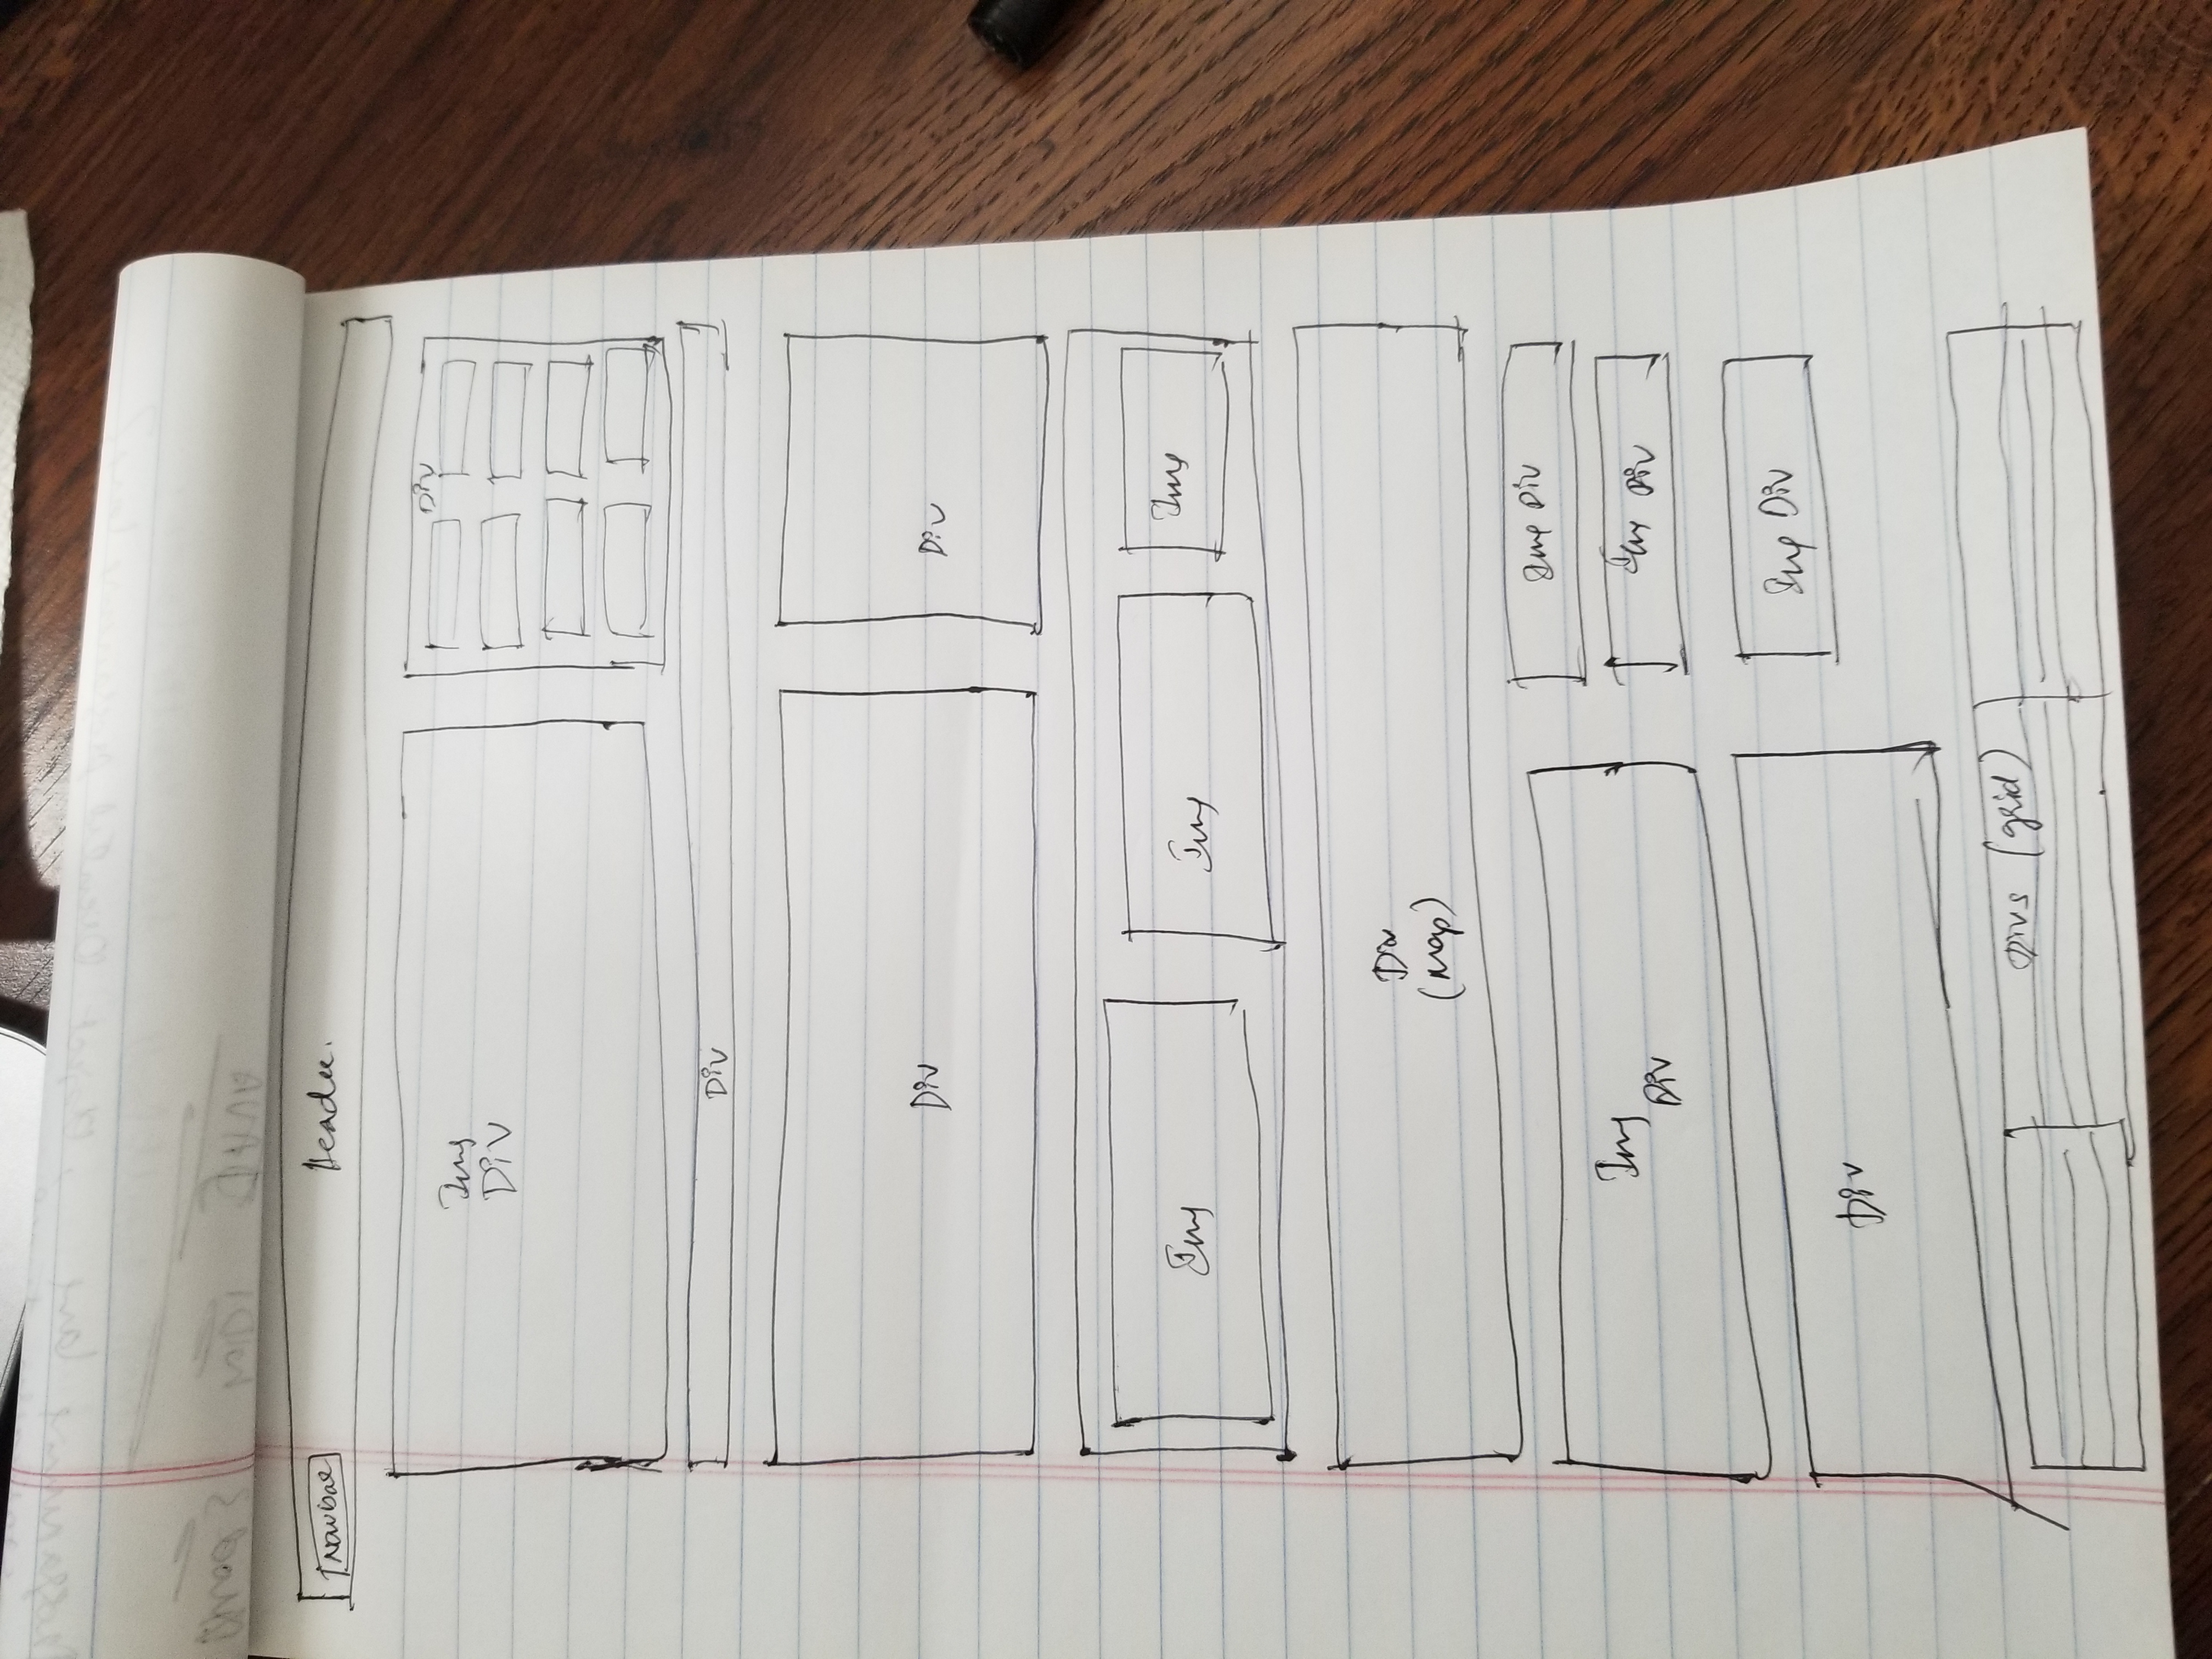 Navbar Header.
Img
Div
Div
Div
Div
Div
Img Img Img
Div
(Map)
Img Div
Img
Div
Img Div
Img Div
Div
Divs (grid)